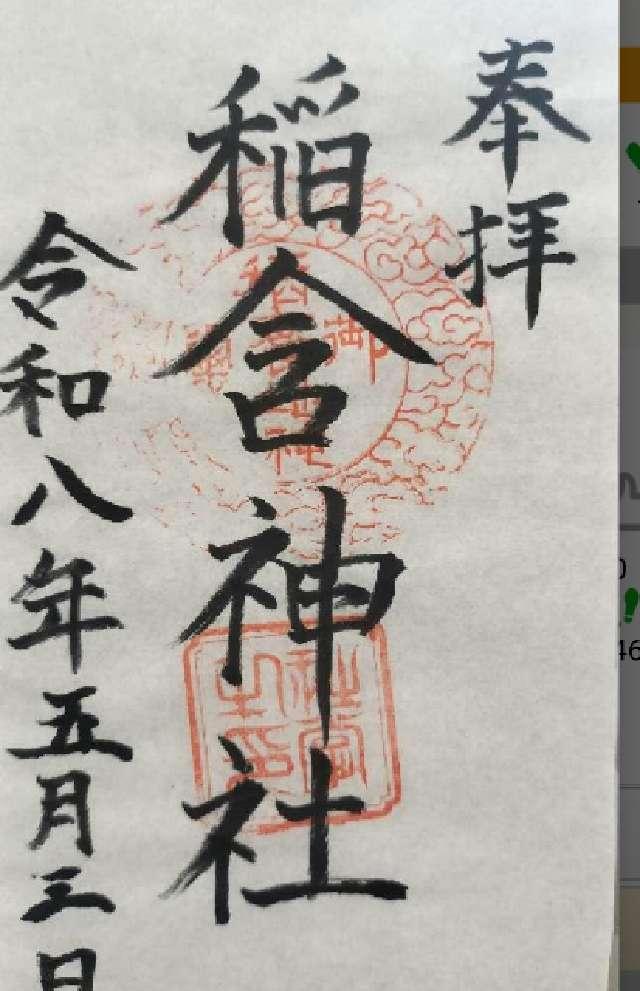 奉拝
稲含神社
令和八年五月三日